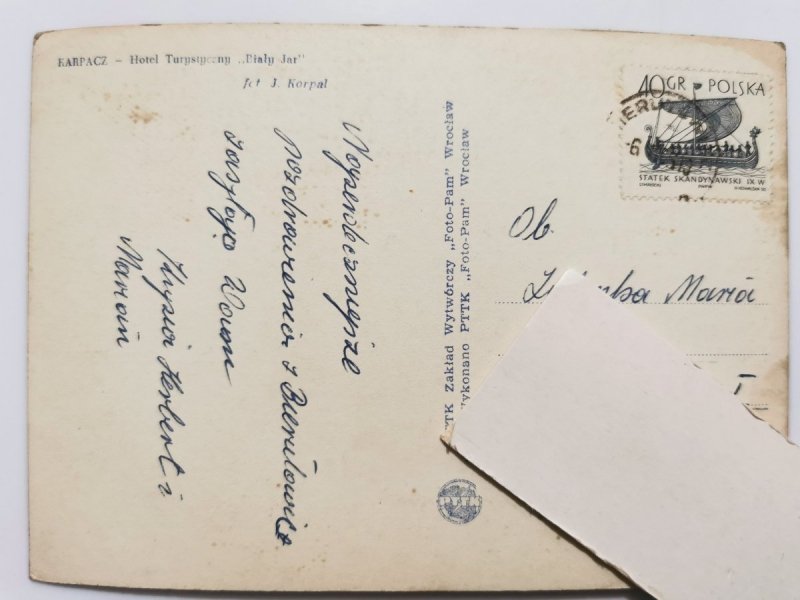 KARPACZ – Hotel Turystyczny „Biały Jar"
fot J. Korpal
Najserdeczniejsze
Pozdrowienia z Bierutowic
zasyłają Wam
Krysia Herbert i
Marian
PTTK Zakład Wytwórczy „Foto-Pam" Wrocław
Wykonano PTTK „Foto-Pam" Wrocław
PTTK
40 GR POLSKA
STATEK SKANDYNAWSKI IX W
BIERU
6
Ob.
Maria